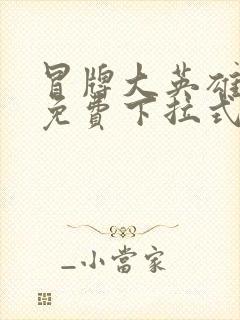 冒牌大英雄
免費下拉式
_小當家